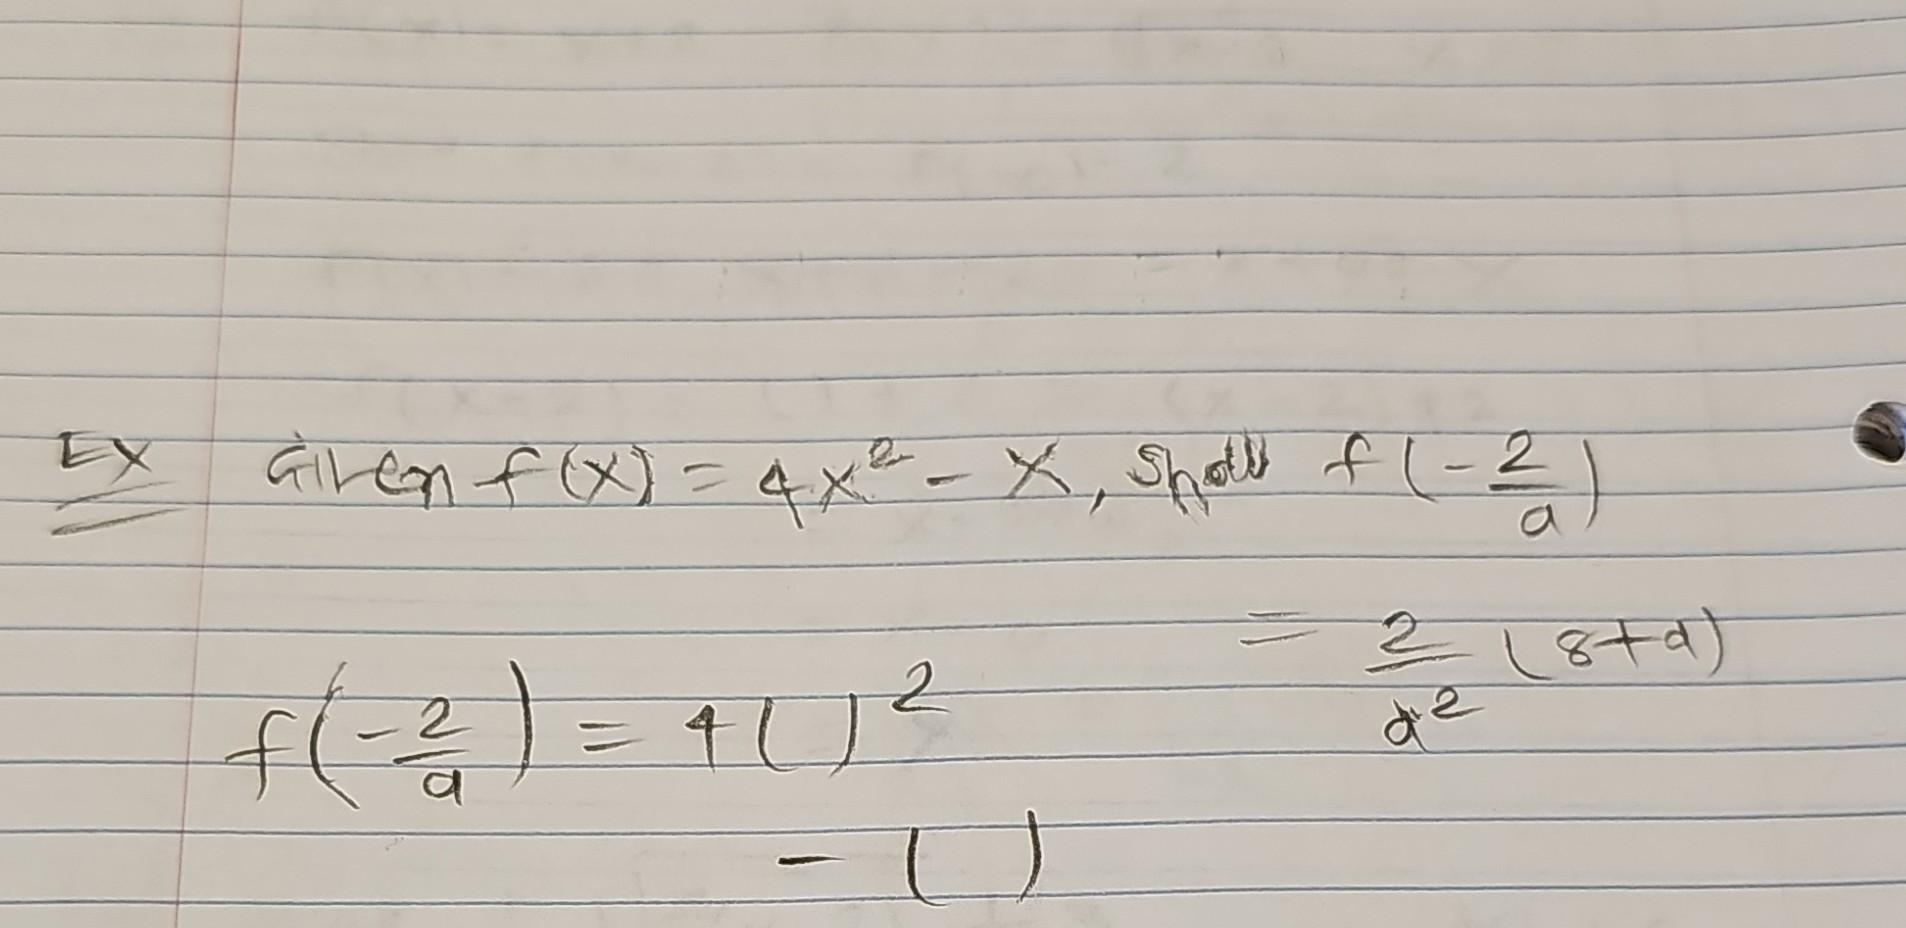 Ex Given f(x) = 4x² - x, show f(-2/a)
= 2/a² (8+a)
f(-2/a) = 4( )²
- ( )